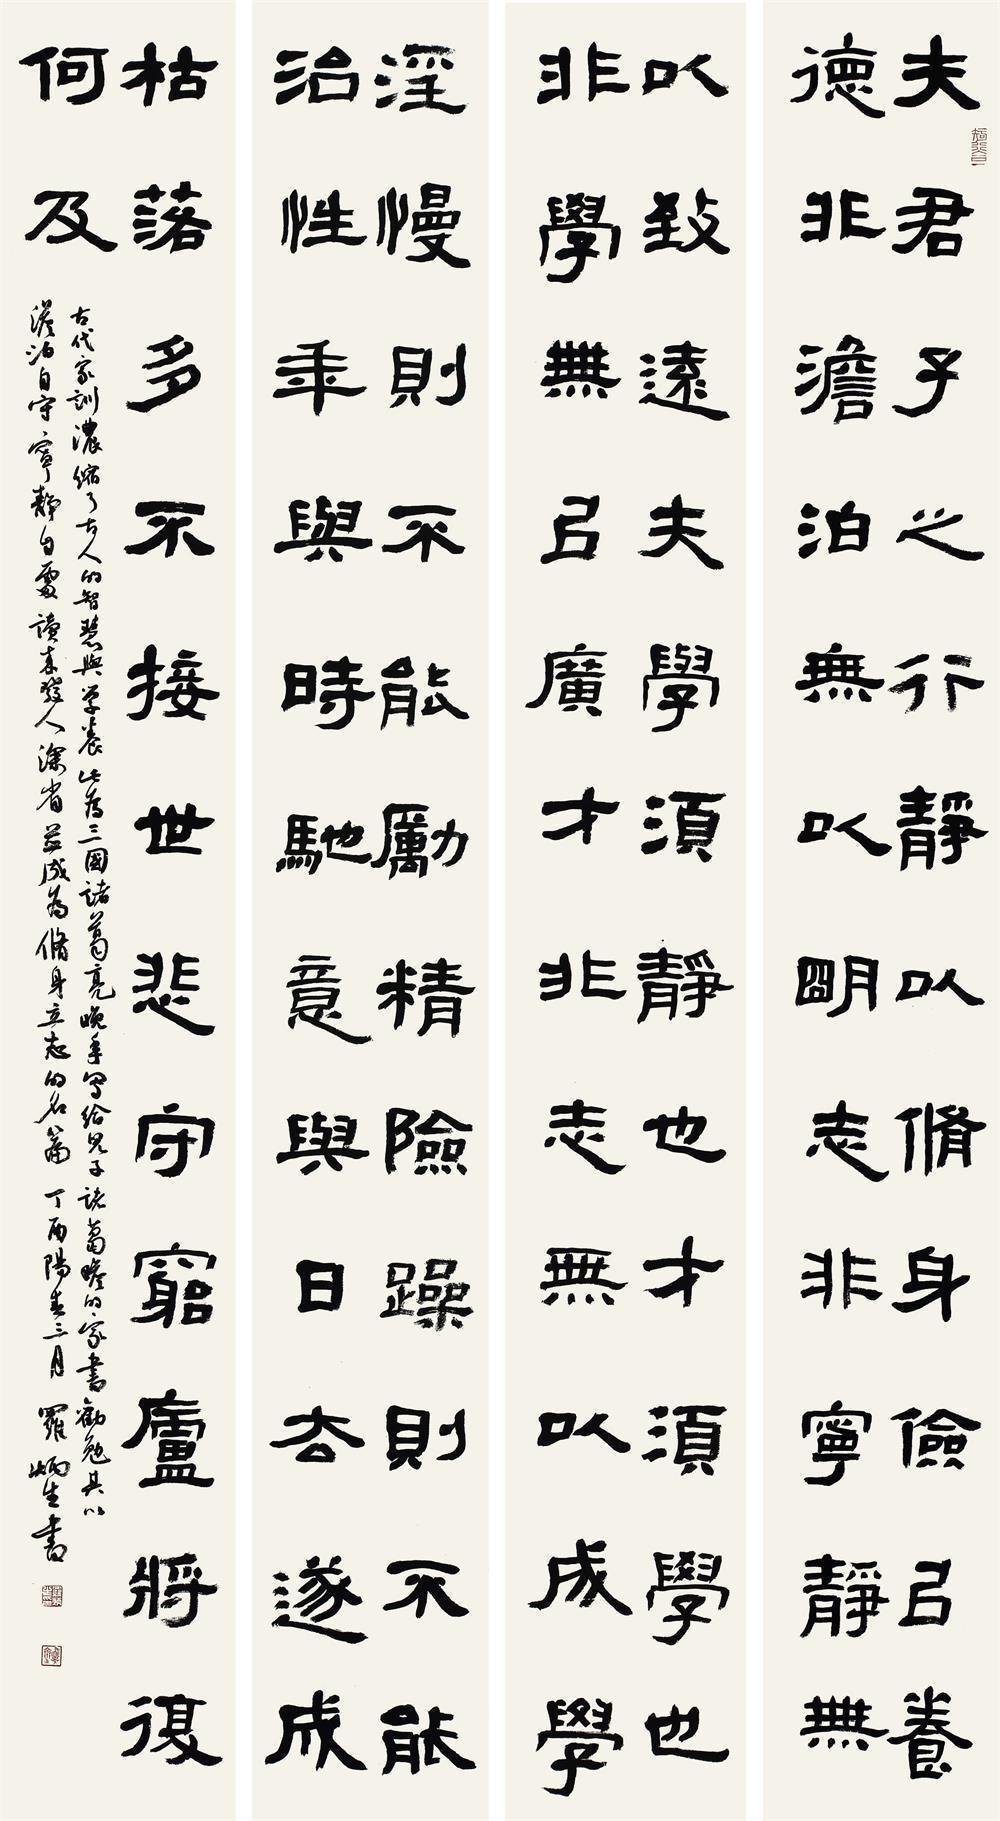 夫君子之行靜以脩身儉㠯養
德非澹泊無以明志非寧靜無
以致遠夫學須靜也才須學也
非學無㠯廣才非志無以成學
淫慢則不能勵精險躁則不能
治性年與時馳意與日去遂成
枯落多不接世悲守窮廬將復
何及
古代家訓濃縮了古人的智慧與學養此為三國諸葛亮晚年寫給兒子諸葛瞻的家書勸勉其以
澹泊自守寧靜自處讀來發人深省並成為脩身立志的名篇 丁酉陽春三月 羅炳生書